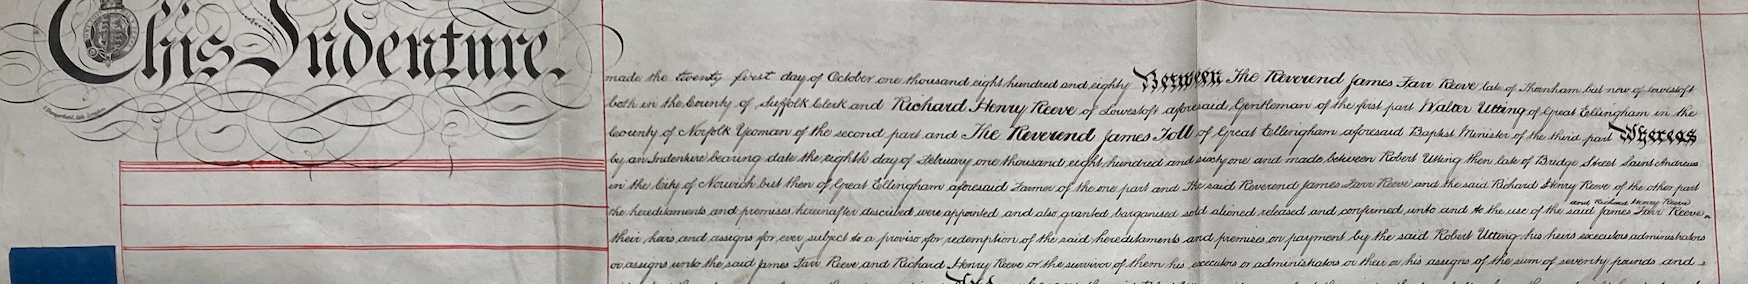 This Indenture.
made the twenty first day of October one thousand eight hundred and eighty Between The Reverend James Farr Reeve late of Thornham but now of Lowestoft
both in the County of Suffolk Clerk and Richard Henry Reeve of Lowestoft aforesaid Gentleman of the first part Walter Utting of Great Ellingham in the
County of Norfolk Yeoman of the second part and The Reverend James Toll of Great Ellingham aforesaid Baptist Minister of the third part Whereas
by an Indenture bearing date the eighth day of February one thousand eight hundred and sixty one and made between Robert Utting then late of Bridge Street Saint Andrews
in the City of Norwich but then of Great Ellingham aforesaid Farmer of the one part and The said Reverend James Farr Reeve and the said Richard Henry Reeve of the other part
and Richard Henry Reeve
the hereditaments and premises hereinafter described were appointed and also granted bargained sold aliened released and confirmed unto and to the use of the said James Farr Reeve
their heirs and assigns for ever subject to a proviso for redemption of the said hereditaments and premises on payment by the said Robert Utting his heirs executors administrators
or assigns unto the said James Farr Reeve and Richard Henry Reeve or the survivor of them his executors or administrators or their or his assigns of the sum of seventy pounds and